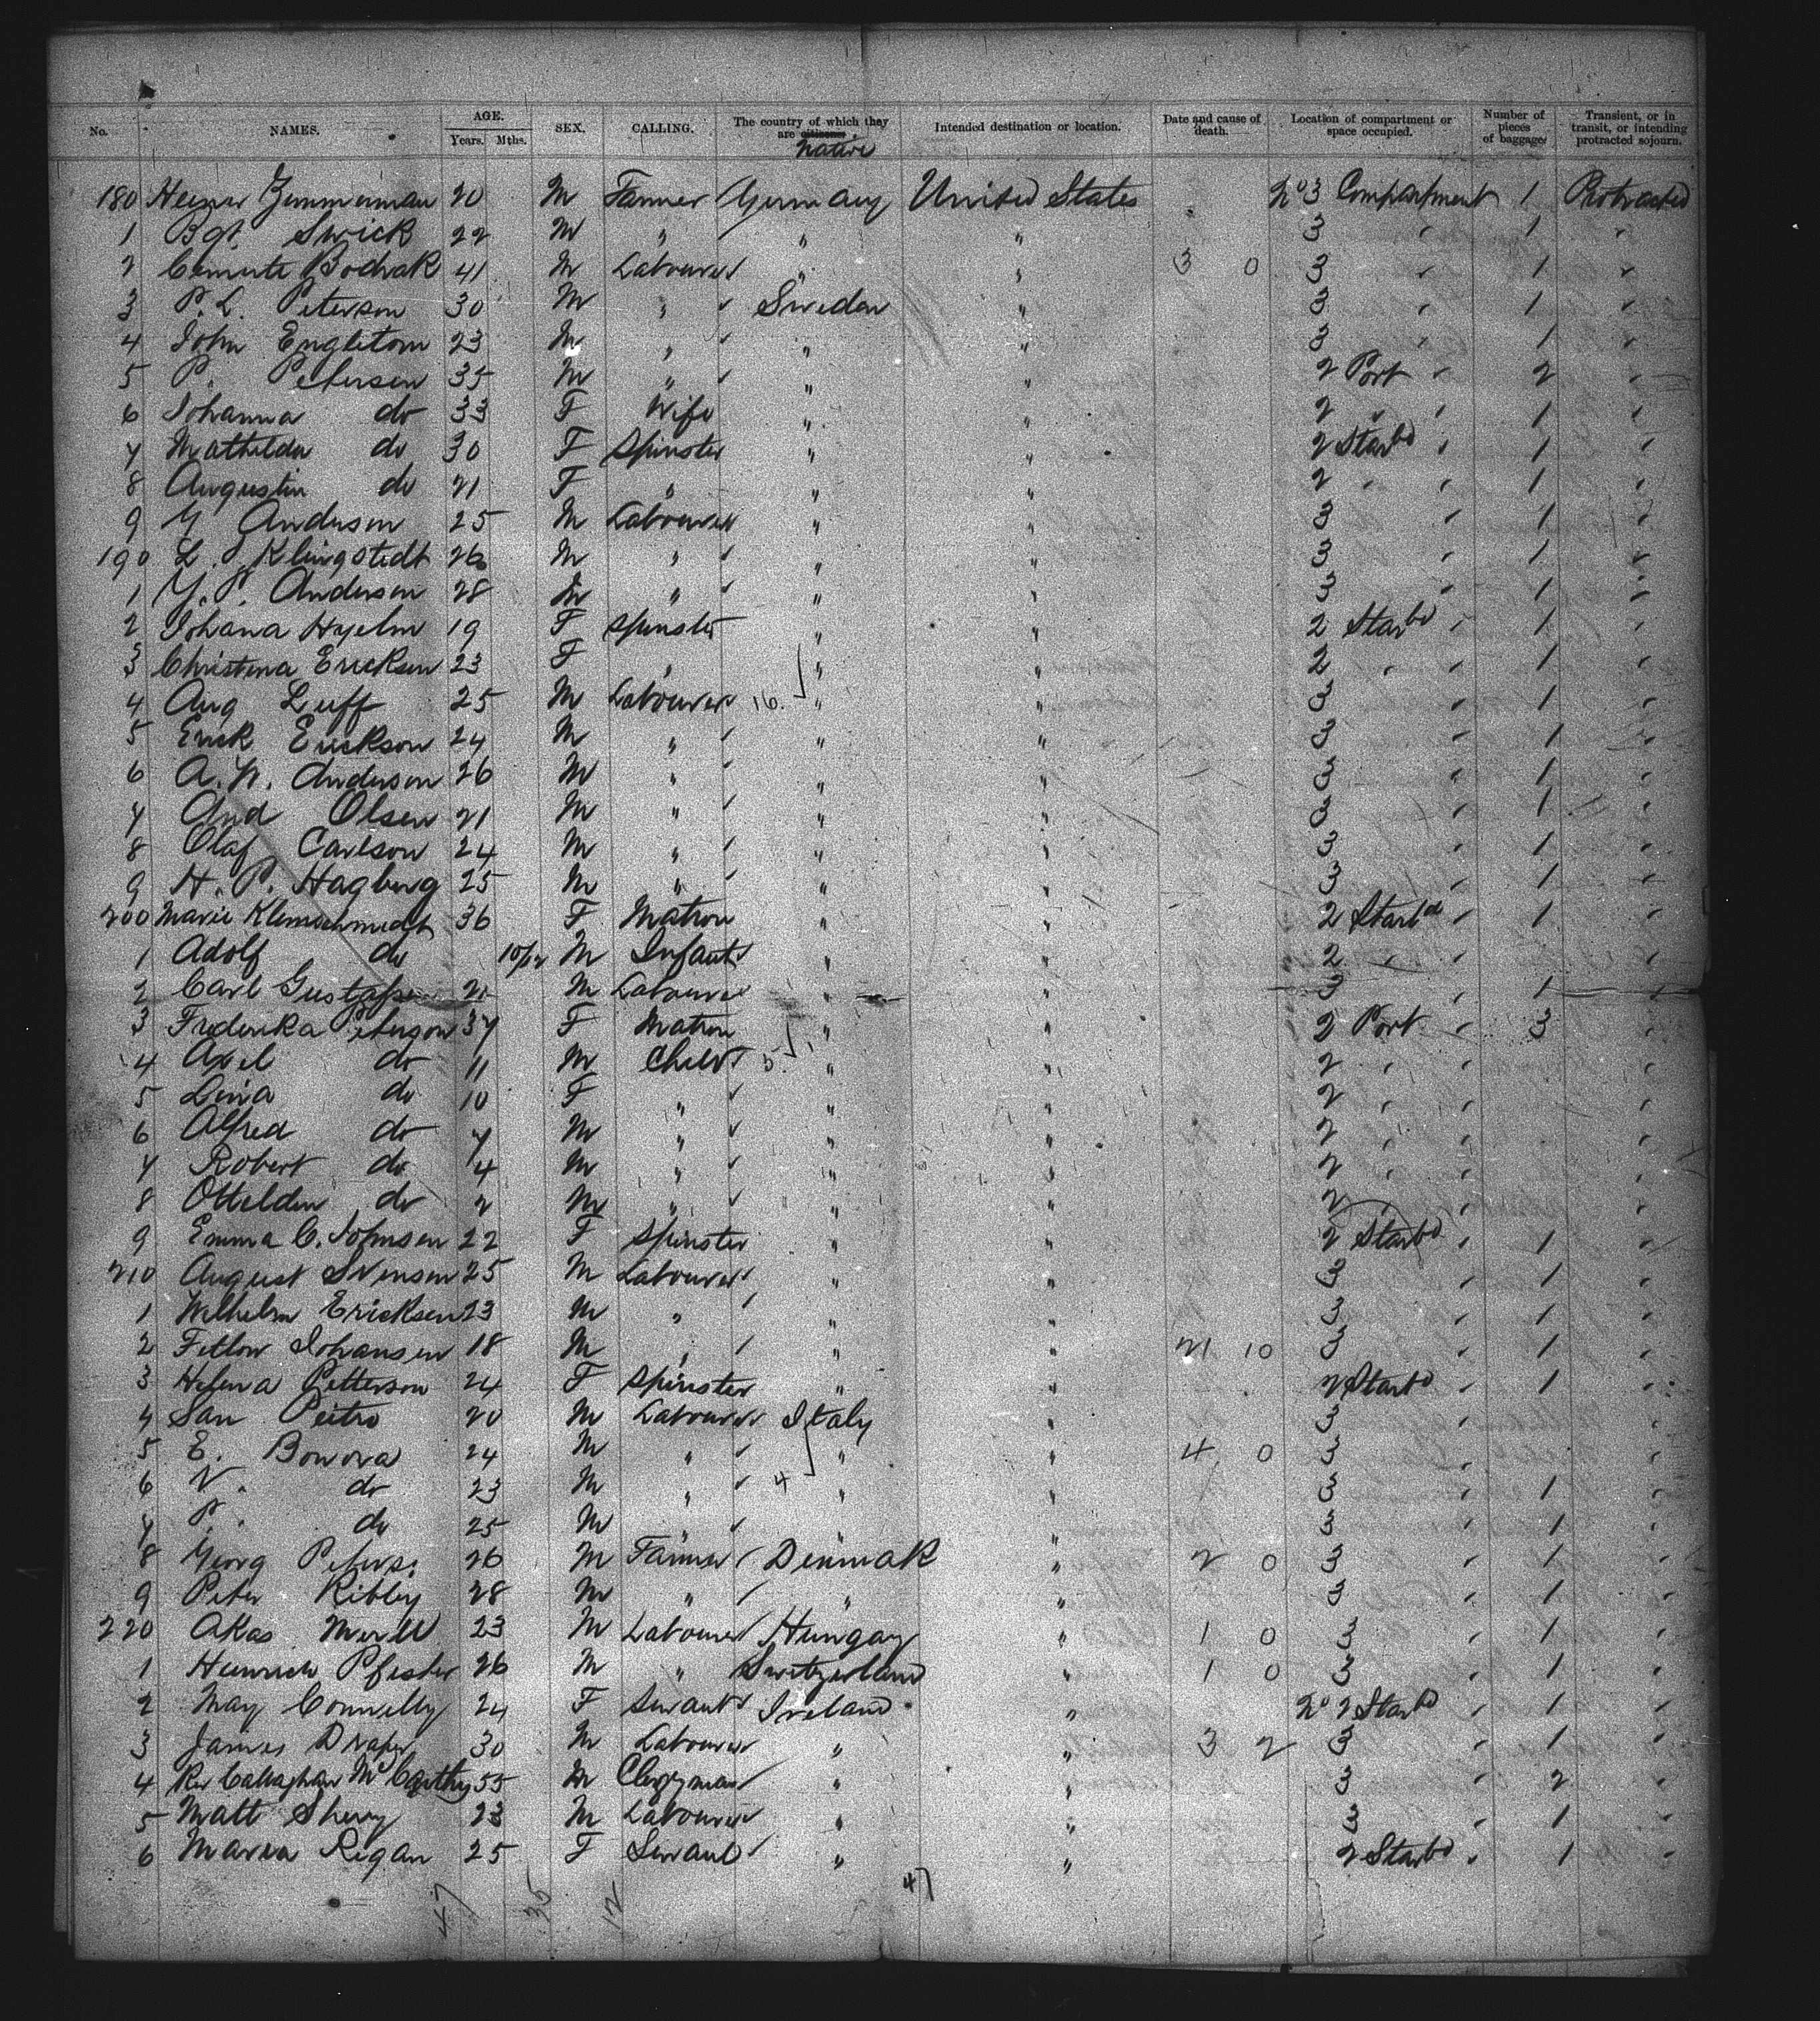 No. NAMES. AGE. Years. Mths. SEX. CALLING. The country of which they are citizens. native Intended destination or location. Date and cause of death. Location of compartment or space occupied. Number of pieces of baggage Transient, or in transit, or intending protracted sojourn.
180 Zimmerman 20 M Farmer Germany United States No 3 Compartment 1 Protracted
1 Swick 22 M " " " 3 " 1 "
2 Bodrak 41 M Labourer " " 3 0 3 " 1 "
3 P. L. Peterson 30 M " Sweden " 3 " 1 "
4 John 23 M " " " 3 " 1 "
5 P. Petersen 35 M " " " 2 Port " 2 "
6 Johanna do 33 F Wife " " 2 " " 1 "
7 Mathilda do 30 F Spinster " " 2 Starbd " 1 "
8 Augustin do 21 F " " " 2 " " 1 "
9 Andersen 25 M Labourer " " 3 " 1 "
190 L. J. Klingstedt 26 M " " " 3 " 1 "
1 Andersen 28 M " " " 3 " 1 "
2 Johana Hyelm 19 F Spinster " " 2 Starbd " 1 "
3 Christina Ericksen 23 F " " " 2 " " 1 "
4 Aug Leuff 25 M Labourer 16 " " 3 " 1 "
5 Erick Erickson 24 M " " " 3 " 1 "
6 A. N. Anderson 26 M " " " 3 " 1 "
7 And Olsen 21 M " " " 3 " 1 "
8 Olaf Carlson 24 M " " " 3 " 1 "
9 H. P. Hagberg 25 M " " " 3 " 1 "
200 Marie Kleinschmidt 36 F Matron " " 2 Starbd " 1 "
1 Adolf do 10/12 M Infant " " 2 " "
2 Carl M Labourer " " 3 " 1 "
3 Frederika Peterson 37 F Matron " " 2 Port " 3 "
4 Axel do 11 M Child 5 " " 2 " " "
5 Lina do 10 F " " " 2 " " "
6 Alfred do 7 M " " " 2 " " "
7 Robert do 4 M " " " 2 " " "
8 do 2 M " " " 2 " "
9 Emma C. Johnsen 22 F Spinster " " 2 Starbd " 1 "
210 August Svensen 25 M Labourer " " 3 " 1 "
1 Wilhelm Ericksen 23 M " " " 3 " 1 "
2 Johansen 18 M " " " 21 10 3 " 1 "
3 Helena Petterson 24 F Spinster " " 2 Starbd " 1 "
4 San Peitro 20 M Labourer Italy " 3 " "
5 E. Bonora 24 M " " " 4 0 3 " "
6 V. do 23 M " 4 " " 3 " 1 "
7 P. do 25 M " " " 3 " 1 "
8 Georg Peters. 26 M Farmer Denmark " 2 0 3 " 1 "
9 Peter Ribley 28 M " " " 3 " 1 "
220 Akas 23 M Labourer Hungay " 1 0 3 " 1 "
1 Heinrich Pfister 26 M " Switzerland " 1 0 3 " 1 "
2 May Connelly 24 F Servant Ireland " No 2 Starbd " 1 "
3 James Draper 30 M Labourer " " 3 2 3 " 1 "
4 Rev Callaghan McCarthy 55 M Clergyman " " 3 " 2 "
5 Matt Sherry 23 M Labourer " " 3 " 1 "
6 Maria Regan 25 F Servant " " 2 Starbd " 1 "
47 35 12 47